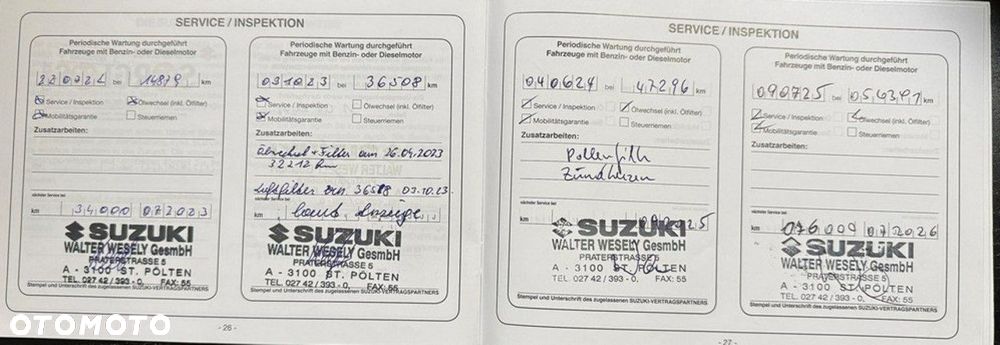 SERVICE / INSPEKTION
Periodische Wartung durchgeführt
Fahrzeuge mit Benzin- oder Dieselmotor
bei 14879 km
Service / Inspektion Ölwechsel (inkl. Ölfilter)
Mobilitätsgarantie Steuerriemen
Zusatzarbeiten:
nächster Service bei
km 34000 072023
SUZUKI
WALTER WESELY GesmbH
PRATERSTRASSE 5
A - 3100 ST. PÖLTEN
TEL. 027 42 / 393 - 0, FAX: 55
Stempel und Unterschrift des zugelassenen SUZUKI-VERTRAGSPARTNERS
Periodische Wartung durchgeführt
Fahrzeuge mit Benzin- oder Dieselmotor
031023 bei 36508 km
Service / Inspektion Ölwechsel (inkl. Ölfilter)
Mobilitätsgarantie Steuerriemen
Zusatzarbeiten:
Ölwechsel + Filter am 26.04.2023
32212 km
Luftfilter 03.10.23
nächster Service bei
km laut Anzeige
SUZUKI
WALTER WESELY GesmbH
PRATERSTRASSE 5
A - 3100 ST. PÖLTEN
TEL. 027 42 / 393 - 0, FAX: 55
Stempel und Unterschrift des zugelassenen SUZUKI-VERTRAGSPARTNERS
- 26 -
SERVICE / INSPEKTION
Periodische Wartung durchgeführt
Fahrzeuge mit Benzin- oder Dieselmotor
040624 bei 47296 km
Service / Inspektion Ölwechsel (inkl. Ölfilter)
Mobilitätsgarantie Steuerriemen
Zusatzarbeiten:
nächster Service bei
km
SUZUKI
WALTER WESELY GesmbH
PRATERSTRASSE 5
A - 3100 ST. PÖLTEN
TEL. 027 42 / 393 - 0, FAX: 55
Stempel und Unterschrift des zugelassenen SUZUKI-VERTRAGSPARTNERS
Periodische Wartung durchgeführt
Fahrzeuge mit Benzin- oder Dieselmotor
090725 bei km
Service / Inspektion Ölwechsel (inkl. Ölfilter)
Mobilitätsgarantie Steuerriemen
Zusatzarbeiten:
nächster Service bei
km 072026
SUZUKI
WALTER WESELY GesmbH
PRATERSTRASSE 5
A - 3100 ST. PÖLTEN
TEL. 027 42 / 393 - 0, FAX: 55
Stempel und Unterschrift des zugelassenen SUZUKI-VERTRAGSPARTNERS
- 27 -
OTOMOTO